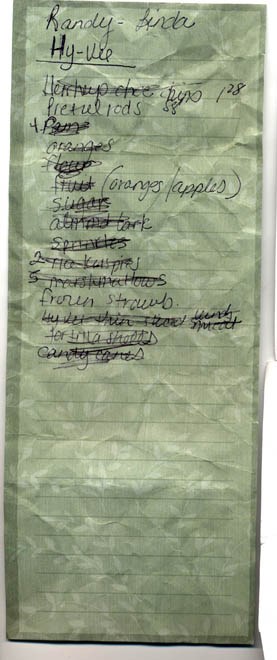 Randy - Linda
Hy-Vee
Hershup choc chips 1.28
Pretzel rods 88
4
oranges
flour
fruit (oranges/apples)
sugars
almond bark
sprinkles
2 rice krispies
5 marshmallows
frozen strawb.
thin meat
tortilla shells
candy canes